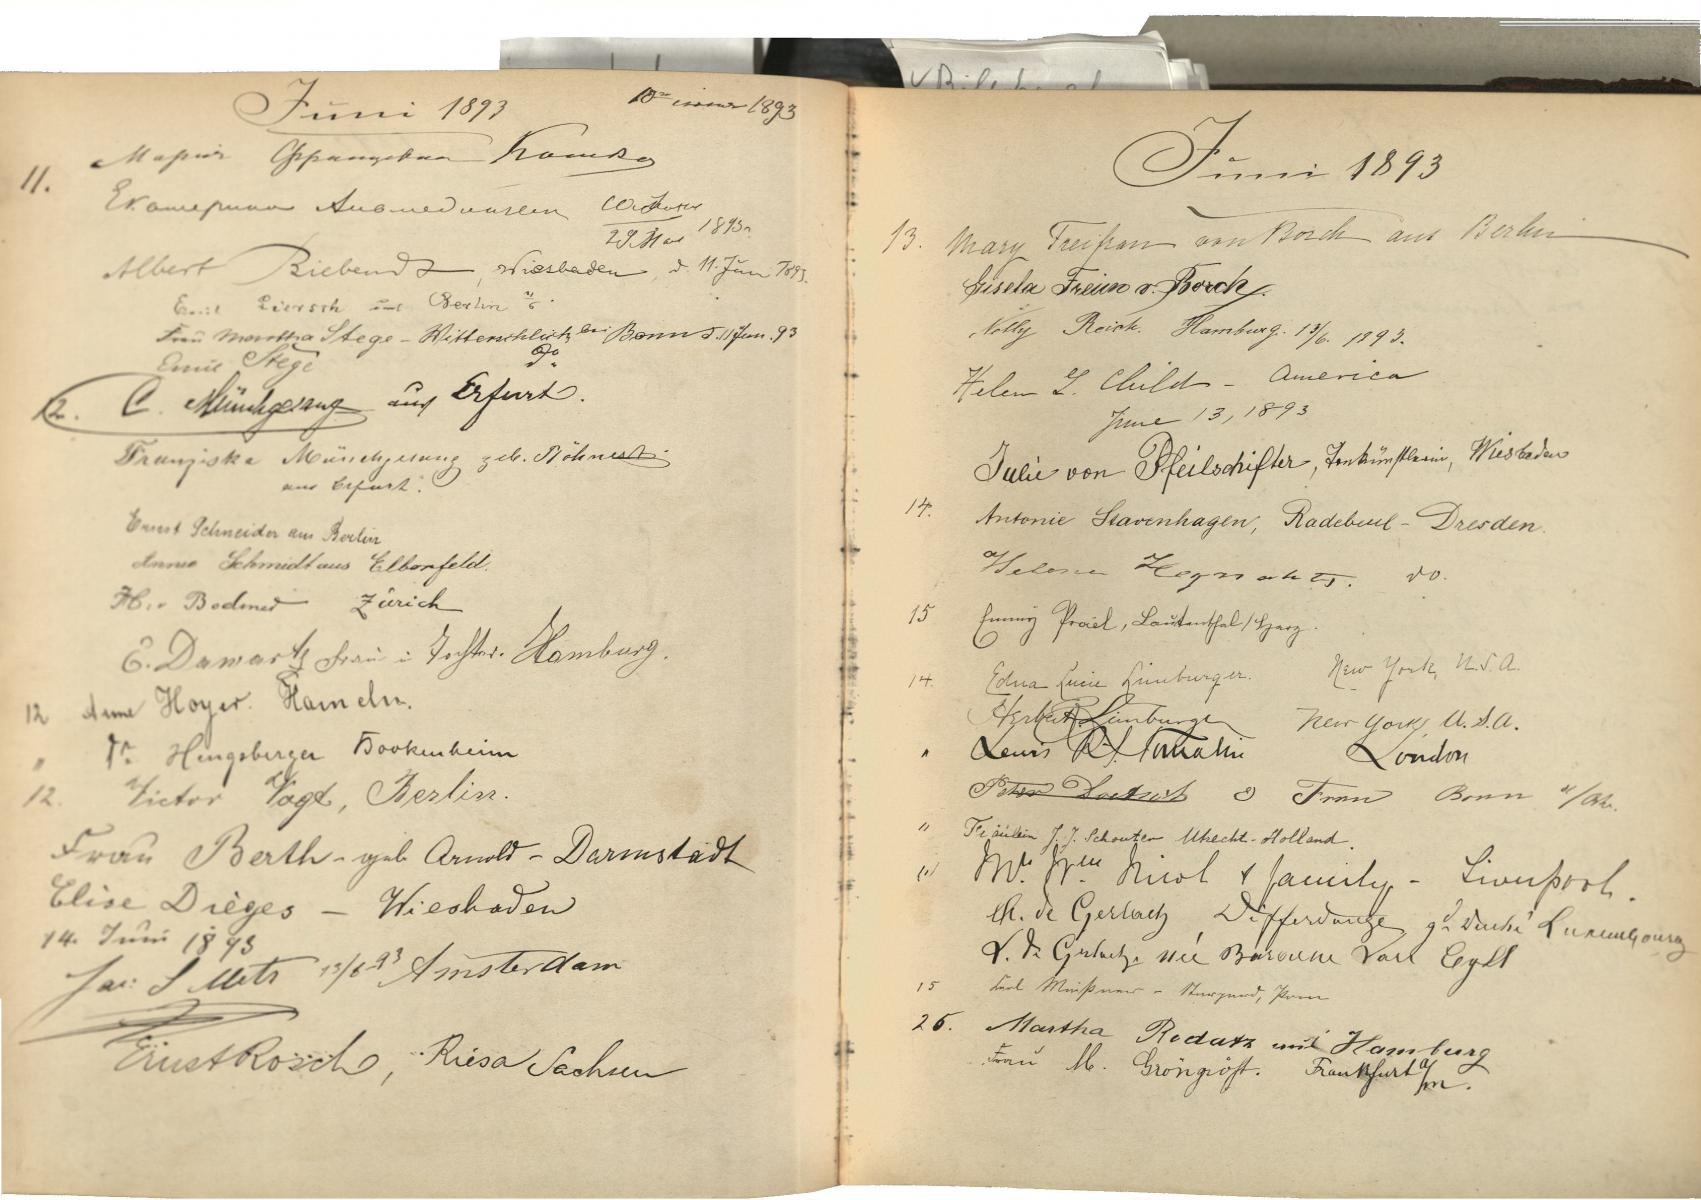 Juni 1893
1893
11.
Мария Францевна
Екатерина
29 Mai 1893.
Albert Biebendt, Wiesbaden, d. 11. Juni 1893.
Emil Liersch aus Berlin
Frau Martha Stege - Witterschlick bei Bonn d. 11 Juni. 93
Emil Stege do
12. C. Münchgesang aus Erfurt.
Franziska Münchgesang geb. Böhnert
aus Erfurt.
Ernst Schneider aus Berlin
Anna Schmidt aus Elberfeld.
Bodmer Zürich
E. Dawartz Frau u Tochter. Hamburg.
12 Anna Hoyer. Hameln.
" Dr. Hengsberger Bockenheim
12. Victor Vogt, Berlin.
Frau Berth - geb Arnold - Darmstadt
Elise Dièges - Wiesbaden
14. Juni 1893
Jac: S Mets 13/6 93 Amsterdam
Ernst Rösch, Riesa Sachsen
v Bils
Juni 1893
13. Mary Freifrau von Borch aus Berlin
Gisela Freiin v. Borch.
Nelly Reick. Hamburg. 13/6. 1893.
Helen L. Child - America
June 13, 1893
Julie von Pfeilschifter, Tonkünstlerin, Wiesbaden
14. Antonie Stavenhagen, Radebeul - Dresden.
Helene do.
15 Emmy Prael, Lautenthal/Harz.
14. Edna Lucie Limburger. New York, U.S.A.
Herbert Limburger New York, U.S.A.
" Lewis R. S. Tomalin London
Peter Doetsch & Frau Bonn a/Rh.
" Fräulein J. J. Schouten Utrecht - Holland.
" Mr. Wm Nicol & family - Liverpool.
de Gerlach, Differdange gd Duché Luxembourg
L. de Gerlach née Baronne
15
26. Martha Rodatz aus Hamburg
Frau M. Frankfurt a/m.